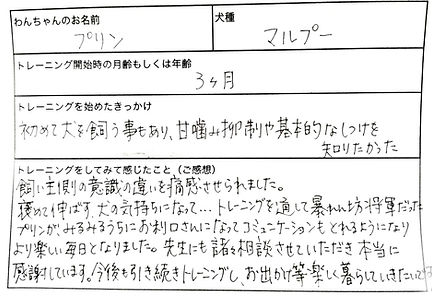 わんちゃんのお名前
プリン
犬種
マルプー
トレーニング開始時の月齢もしくは年齢
3ヶ月
トレーニングを始めたきっかけ
初めて犬を飼う事もあり、甘噛み抑制や基本的なしつけを
知りたかった
トレーニングをしてみて感じたこと（ご感想）
飼い主側の意識の違いを痛感させられました。
褒めて伸ばす、犬の気持ちになって…トレーニングを通して暴れん坊将軍だった
プリンが、みるみるうちにお利口さんになってコミュニケーションもとれるようになり
より楽しい毎日となりました。先生にも諸々相談させていただき本当に
感謝しています。今後も引き続きトレーニングし、お出かけ等楽しく暮らしていきたいです